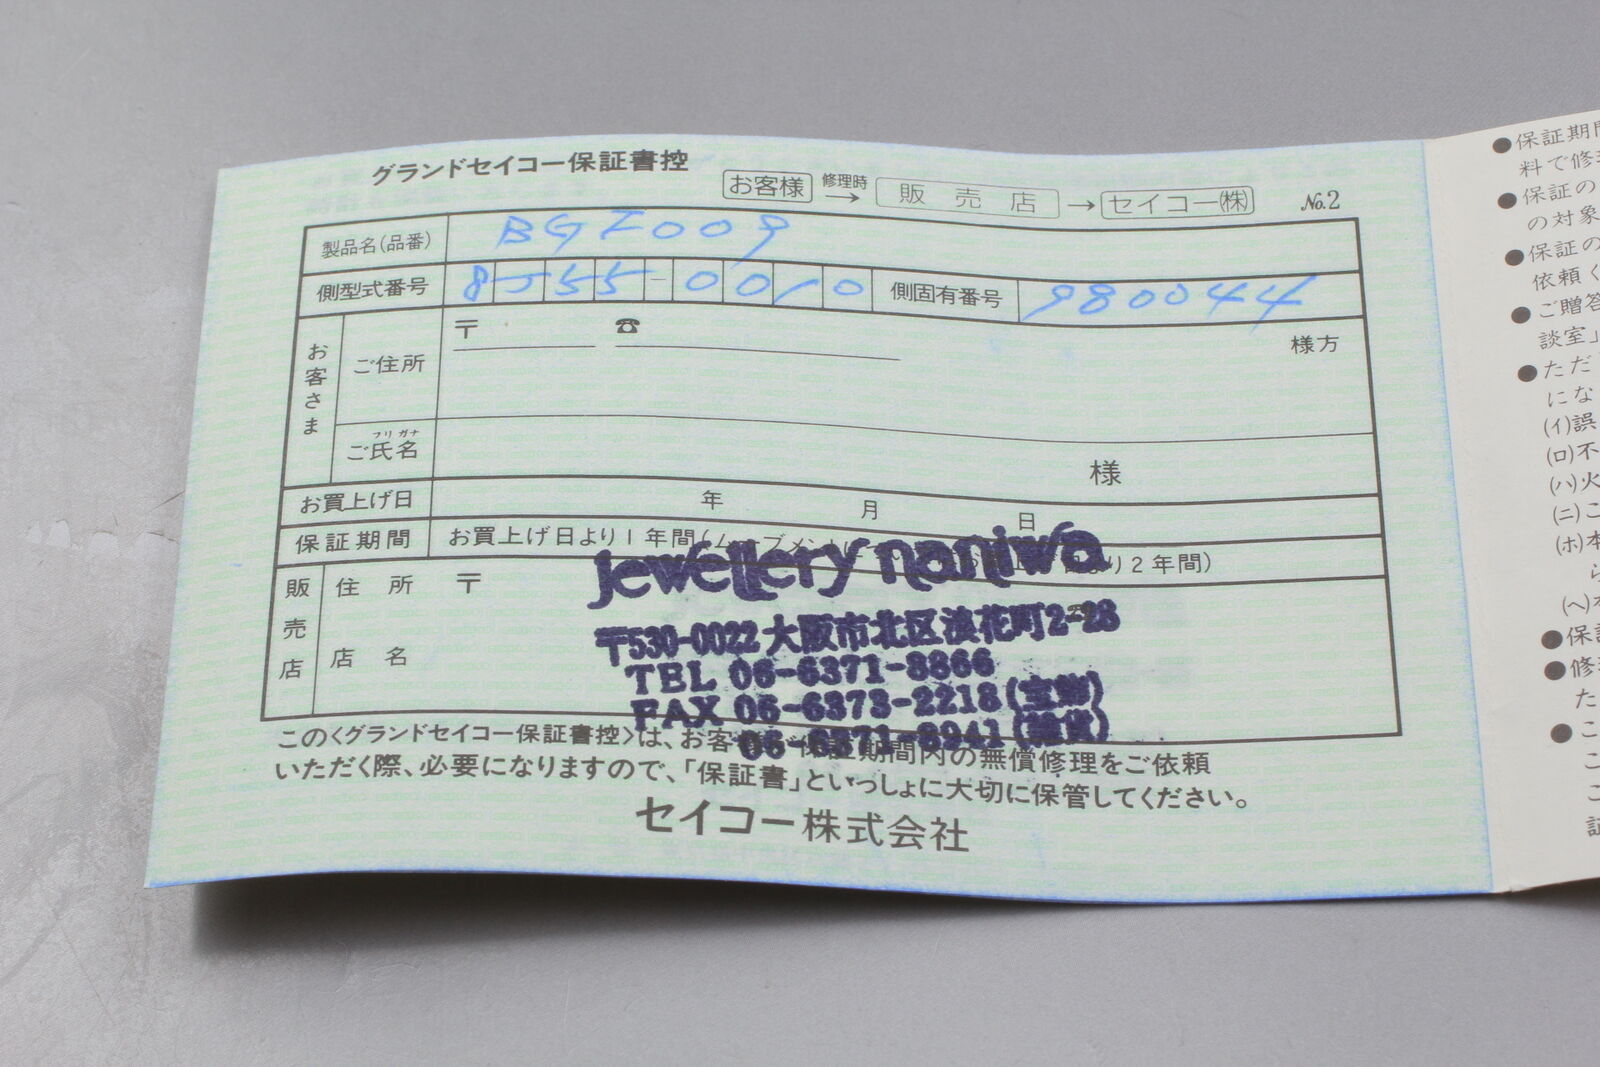 グランドセイコー保証書控
お客様 修理時 → 販売店 → セイコー㈱ No.2
製品名(品番) BGF009
側型式番号 8J55-0010 側固有番号 980044
お客さま ご住所 〒 ☎ 様方
フリガナ
ご氏名 様
お買上げ日 年 月 日
保証期間 お買上げ日より1年間(ムーブメント より2年間)
販売店 住所 〒
店名
jewellery naniwa
〒530-0022 大阪市北区浪花町2-28
TEL 06-6371-8866
FAX 06-6373-2218(宝飾)
06-6371-8941(雑貨)
この<グランドセイコー保証書控>は、お客 保証期間内の無償修理をご依頼
いただく際、必要になりますので、「保証書」といっしょに大切に保管してください。
セイコー株式会社
●保証期間
料で修理
●保証の
の対象
●保証の
依頼く
●ご贈答
談室」
●ただ
にな
(イ)誤
(ロ)不
(ハ)火
(ニ)こ
(ホ)本
ら
(ヘ)本
●保証
●修理
た
●こ
こ
こ
証